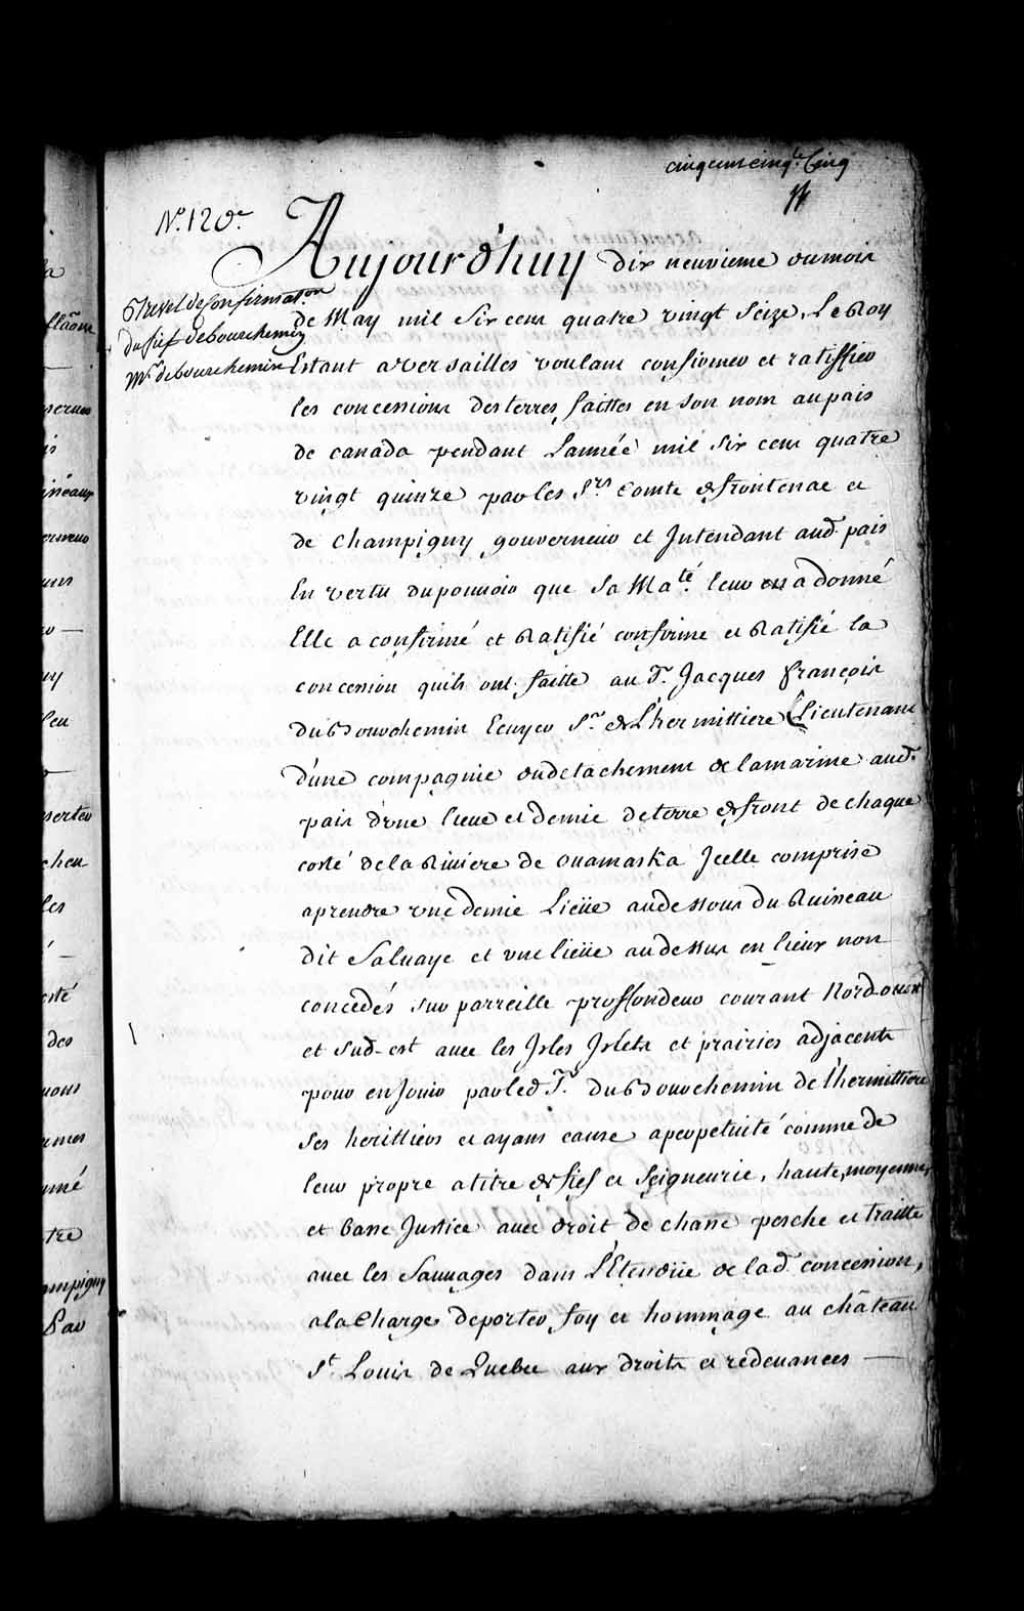 cinq cent cinq.te Cinq
N.o 120.e
Brevet de Confirmat.on
du fief de bourchemin
Mr. de bourchemin
Aujourd'huy dix neuvieme du mois
de May mil Six cens quatre vingt Seize, Le Roy
Estant a Versailles voulant confirmer et ratiffier
les concessions des terres faittes en son nom au pais
de canada pendant L'année mil Six cens quatre
vingt quinze par les S.rs Comte de frontenac et
de Champigny gouverneur et Intendant aud. pais
En vertu du pouvoir que Sa Ma.té leur en a donné
Elle a confirmé et Ratifié confirme et Ratifie la
concession quils ont faitte au S.r Jacques françois
du Bourchemin Ecuyer S.r de L'hermittiere Lieutenant
d'une compagnie du detachement de la marine aud.
pais d'une lieue et demie de terre de front de chaque
costé de la Riviere de ouamaska Icelle comprise
a prendre une demie Lieüe au dessous du Ruisseau
dit Salvaye et une lieüe au dessus en lieux non
concedés sur parreille proffondeur courant Nord-ouest
et Sud-est avec les Isles Islets et prairies adjacents
pour en Jouir par led. S.r du Bourchemin de l'hermittiere
Ses heritiers et ayans cause a perpetuité comme de
leur propre a titre de fief et Seigneurie, haute, moyenne,
et basse Justice avec droit de chasse pesche et traitte
avec les Sauvages dans L'Etendüe de lad. concession,
a la Charge de porter foy et hommage au château
S.t Louis de Quebec aux droits et redevances —